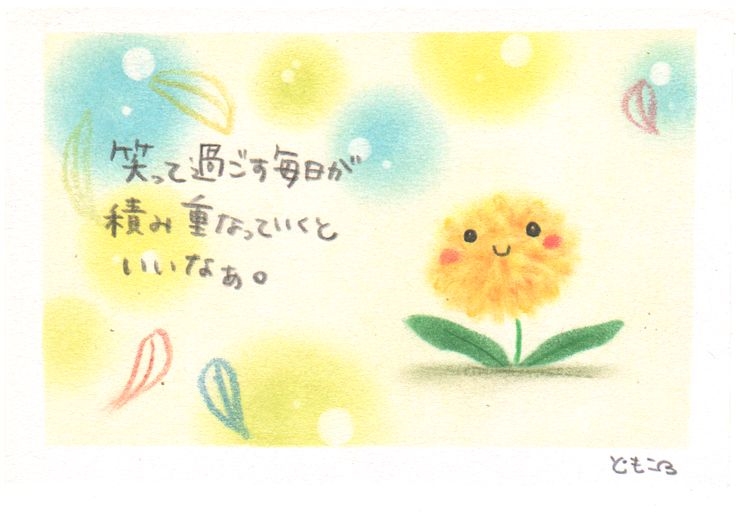 笑って過ごす毎日が
積み重なっていくと
いいなぁ。
ともころ